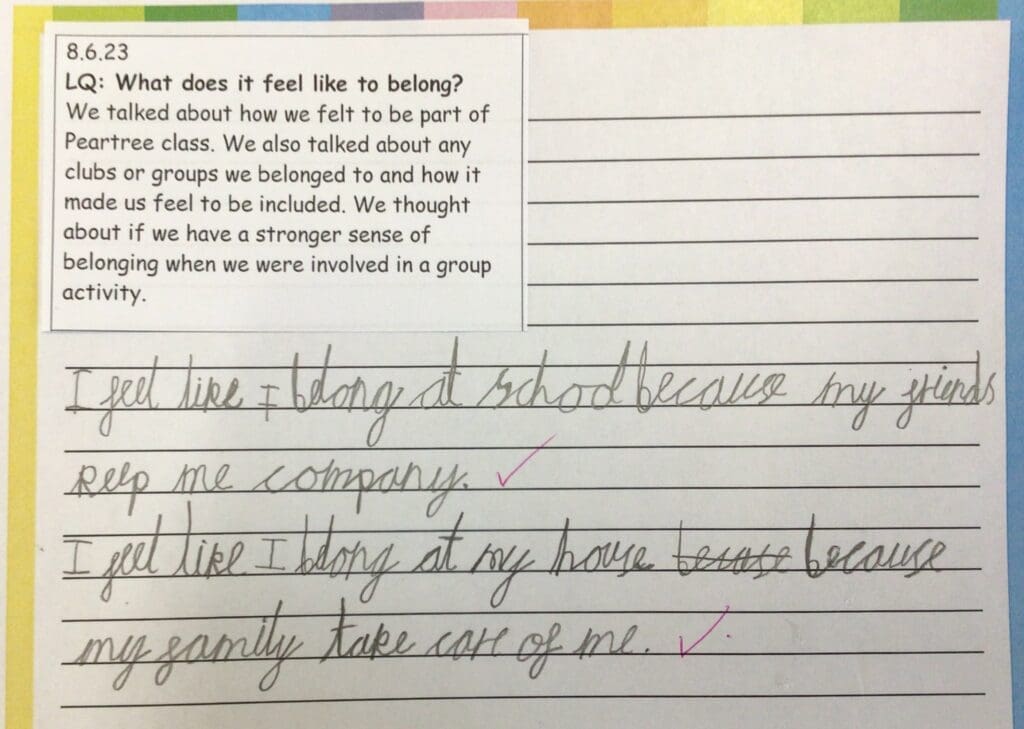 8.6.23
LQ: What does it feel like to belong?
We talked about how we felt to be part of
Peartree class. We also talked about any
clubs or groups we belonged to and how it
made us feel to be included. We thought
about if we have a stronger sense of
belonging when we were involved in a group
activity.
I feel like I belong at school because my friends
keep me company.
I feel like I belong at my house becuase because
my family take care of me.